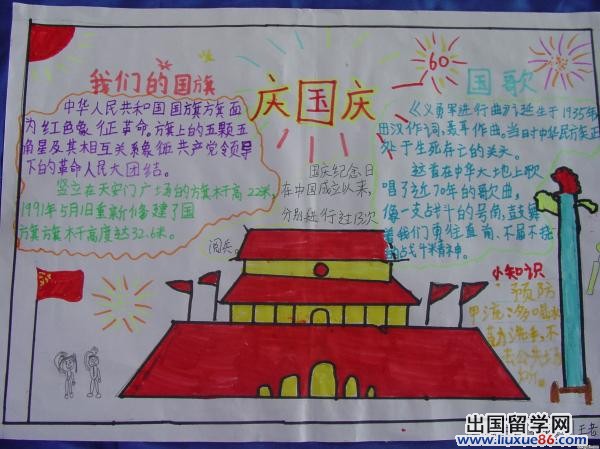 庆国庆
60
我们的国旗
中华人民共和国国旗旗面
为红色象征革命。旗上的五颗五
角星及其相互关系象征共产党领导
下的革命人民大团结。
竖立在天安门广场的旗杆高22米,
1991年5月1日重新修建了国
旗旗杆高度达32.6米。
国庆纪念日
在中国成立以来,
分别进行过13次
阅兵。
国歌
《义勇军进行曲》诞生于1935年
田汉作词,聂耳作曲。当日时中华民族正
处于生死存亡的关头。
这首在中华大地上歌
唱了近70年的歌曲,
像一支战斗的号角,鼓舞
着我们勇往直前、不屈不挠
的战斗精神。
小知识
预防
甲流:多喝水
勤洗手,不
去公共场
王者
出国留学网
www.liuxue86.com